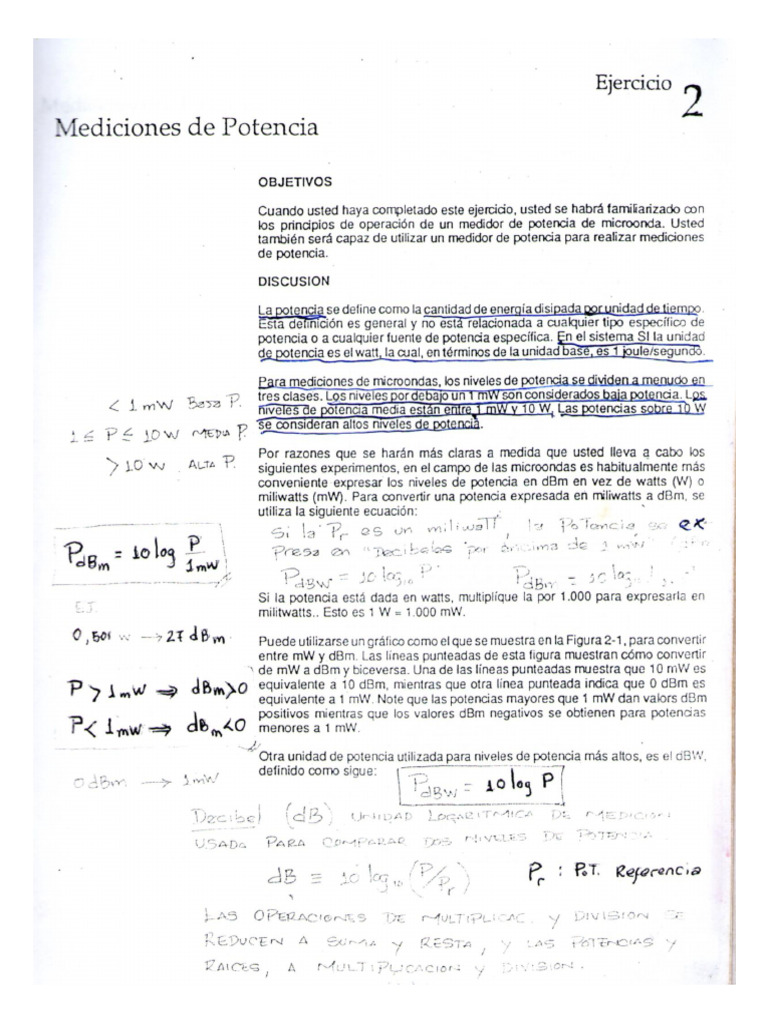 Ejercicio 2
Mediciones de Potencia
OBJETIVOS
Cuando usted haya completado este ejercicio, usted se habrá familiarizado con
los principios de operación de un medidor de potencia de microonda. Usted
también será capaz de utilizar un medidor de potencia para realizar mediciones
de potencia.
DISCUSION
La potencia se define como la cantidad de energía disipada por unidad de tiempo.
Esta definición es general y no está relacionada a cualquier tipo específico de
potencia o a cualquier fuente de potencia específica. En el sistema SI la unidad
de potencia es el watt, la cual, en términos de la unidad base, es 1 joule/segundo.
Para mediciones de microondas, los niveles de potencia se dividen a menudo en
tres clases. Los niveles por debajo un 1 mW son considerados baja potencia. Los
niveles de potencia media están entre 1 mW y 10 W. Las potencias sobre 10 W
se consideran altos niveles de potencia.
< 1 mW Baja P.
1 ≤ P ≤ 10 W MEDIA P.
> 10 W ALTA P.
Por razones que se harán más claras a medida que usted lleva a cabo los
siguientes experimentos, en el campo de las microondas es habitualmente más
conveniente expresar los niveles de potencia en dBm en vez de watts (W) o
miliwatts (mW). Para convertir una potencia expresada en miliwatts a dBm, se
utiliza la siguiente ecuación:
Si la Pr es un miliwatt, la Potencia se ex
Presa en "Decibelos por encima de 1 mW"
PdBm = 10 log P/1mW
PdBW = 10 log10 P PdBm = 10 log
Si la potencia está dada en watts, multiplíque la por 1.000 para expresarla en
militwatts.. Esto es 1 W = 1.000 mW.
EJ.
0,501 W → 27 dBm
Puede utilizarse un gráfico como el que se muestra en la Figura 2-1, para convertir
entre mW y dBm. Las líneas punteadas de esta figura muestran cómo convertir
de mW a dBm y biceversa. Una de las líneas punteadas muestra que 10 mW es
equivalente a 10 dBm, mientras que otra línea punteada indica que 0 dBm es
equivalente a 1 mW. Note que las potencias mayores que 1 mW dan valors dBm
positivos mientras que los valores dBm negativos se obtienen para potencias
menores a 1 mW.
P > 1mW ⇒ dBm>0
P < 1mW ⇒ dBm<0
0 dBm → 1mW
Otra unidad de potencia utilizada para niveles de potencia más altos, es el dBW,
definido como sigue:
PdBW = 10 log P
Decibel (dB) UNIDAD LOGARITMICA DE MEDICION
USADA PARA COMPARAR DOS NIVELES DE POTENCIA.
dB ≡ 10 log10 (P/Pr) Pr : POT. Referencia
LAS OPERACIONES DE MULTIPLICAC. Y DIVISION SE
REDUCEN A SUMA Y RESTA, Y LAS POTENCIAS Y
RAICES, A MULTIPLICACION Y DIVISION.